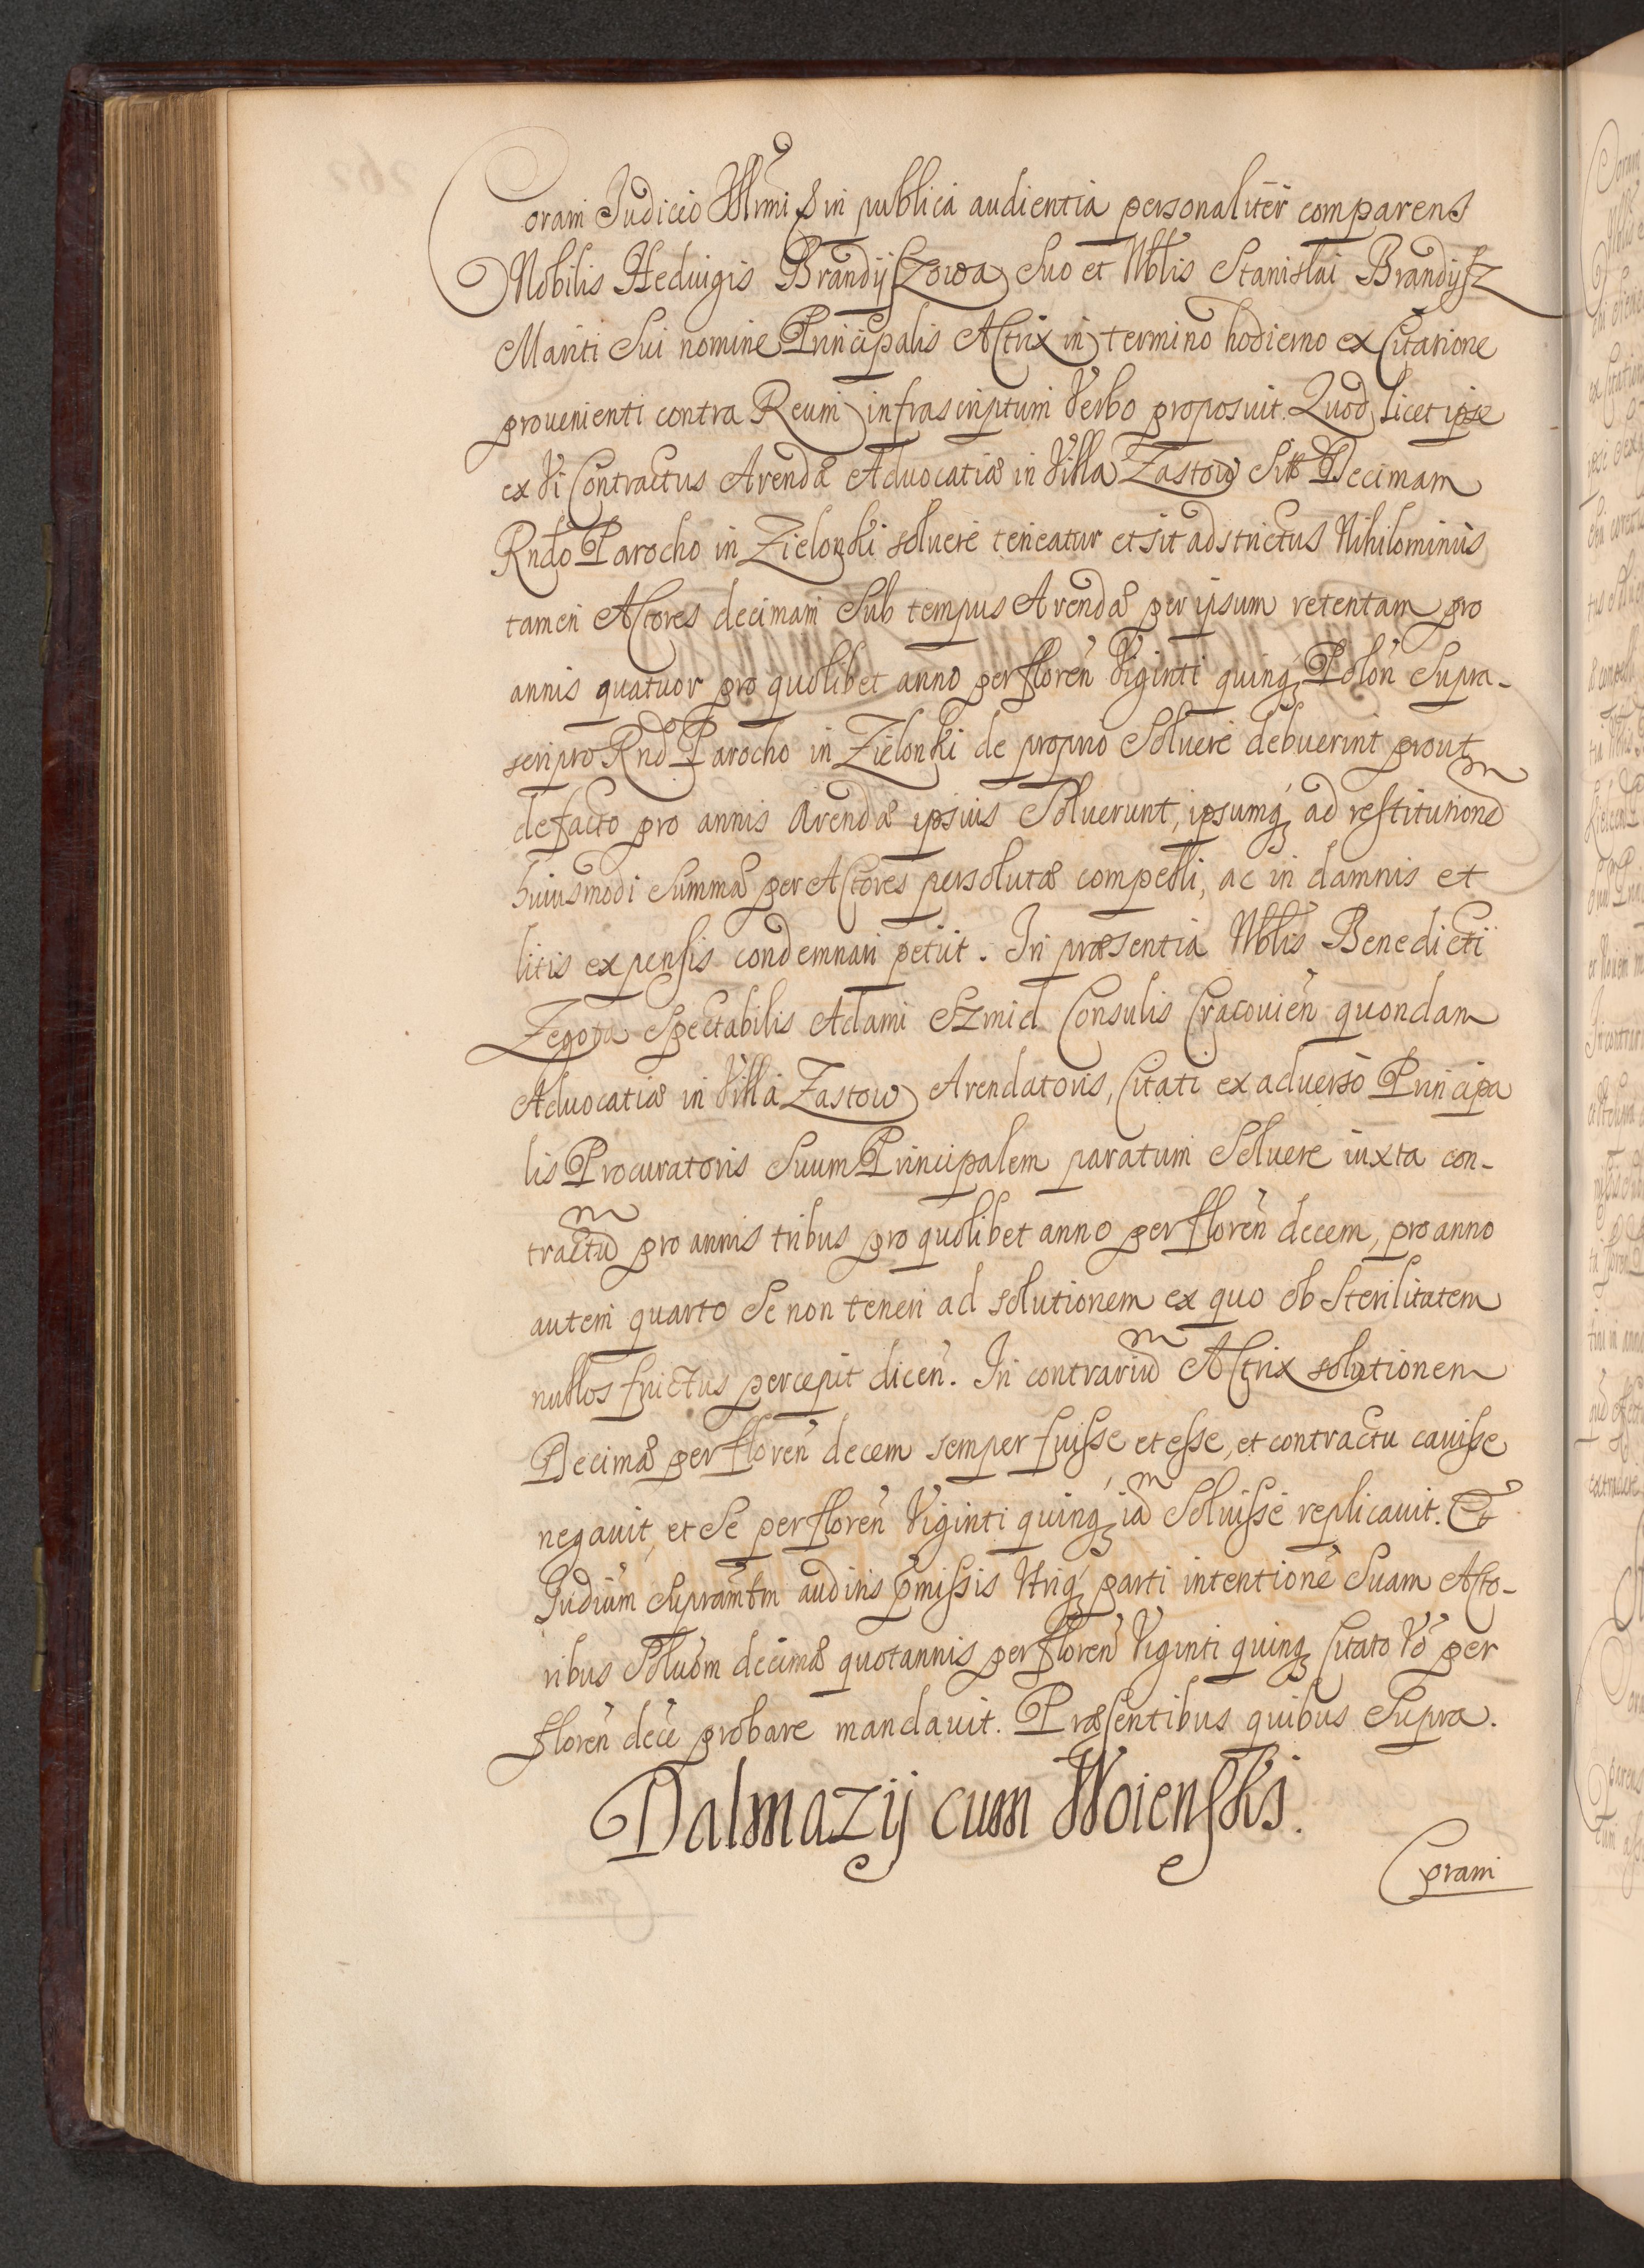 Coram Judicio Illrmi & in publica audientia personaliter comparens
Nobilis Heduigis Brandyszowa suo et Nblis Stanislai Brandysz
Mariti sui nomine Principalis Actrix in termino hodierno ex Citatione
prouenienti contra Reum infrascriptum Verbo proposuit. Quod licet ipse
ex Vi Contractus Arendæ Aduocatiæ in Villa Zastow Decimam
Rndo Parocho in Zielonki soluere teneatur et sit adstrictus Nihilominus
tamen Actores decimam sub tempus Arendæ per ipsum retentam pro
annis quatuor pro quolibet anno per floren̄ Viginti quinq; Polon̄ Supra-
scripto Rndo Parocho in Zielonki de proprio Soluere debuerint prout
de facto pro annis Arendæ ipsius Soluerunt, ipsumq; ad restitutionem
huiusmodi Summæ per Actores persolutæ compelli, ac in damnis et
litis expensis condemnari petiit. In præsentia Nblis Benedicti
Zegota Spectabilis Adami Szmid Consulis Cracouien̄ quondam
Aduocatiæ in Villa Zastow Arendatoris, Citati ex aduerso Principa
lis Procuratoris Suum Principalem paratum Soluere iuxta con-
tractum pro annis tribus pro quolibet anno per floren̄ decem, pro anno
autem quarto Se non teneri ad solutionem ex quo ob Sterilitatem
nullos fructus percepit dicen̄. In contrarium Actrix solutionem
Decimæ per floren̄ decem semper fuisse et esse, et contractu cauisse
negauit, et Se per floren̄ Viginti quinq; iam Soluisse replicauit. Et
Judium Supramtm auditis p̄missis Utriq; parti intentionē Suam Acto-
ribus Soluōm decimæ quotannis per floren̄ Viginti quinq; Citato Vō per
floren̄ decē probare mandauit. Præsentibus quibus Supra.
Dalmazij cum Woienski.
Coram